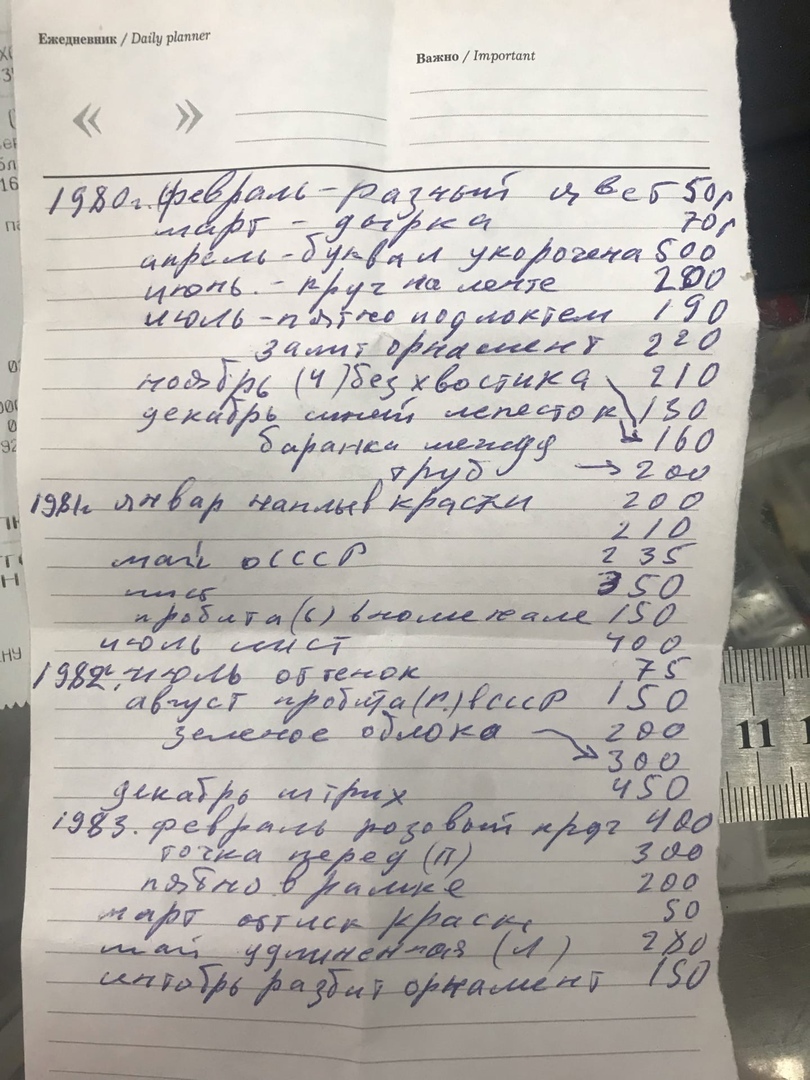 Ежедневник / Daily planner
Важно / Important
« »
1980г. февраль - разный цвет 50р
март - дырка 70р
апрель - буква л укорочена 500
июнь. - круг на ленте 200
июль - пятно под локтем 190
залит орнамент 220
ноябрь (ч) без хвостика 210
декабрь синий лепесток 130
баранка между → 160
труб → 200
1981г январ наплыв краски 200
210
май о СССР 235
лист 350
пробита (б) в номенкале 150
июль лист 400
1982г. июль оттенок 75
август пробита (п.) в СССР 150
зеленое облока 200
→ 300
декабрь штрих 450
1983. февраль розовый круг 400
точка перед (П) 300
пятно в рамке 200
март оттиск краски 50
май удлиненная (Л) 280
разбит орнамент 150
11